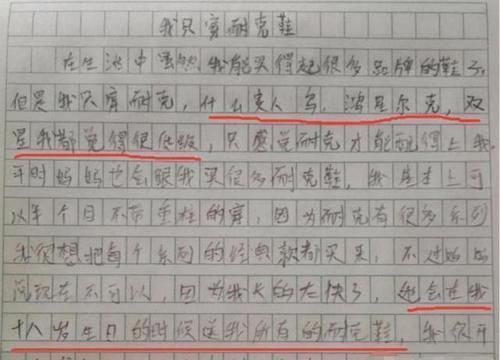 我只穿耐克鞋
在生活中虽然我能买得起很多品牌的鞋子
但是我只穿耐克，什么安人乌，鸿星尔克，双
星我都觉得很低级，只感觉耐克才能配得上我
平时妈妈也会跟我买很多耐克鞋，我基本上可
以年个月不带重样的穿，因为耐克有很多系列
我很想把每个系列的经典款都买来，不过妈妈
说现在不可以，因为我长的太快了，她会在我
十八岁生日的时候送我所有的耐克鞋，我很开